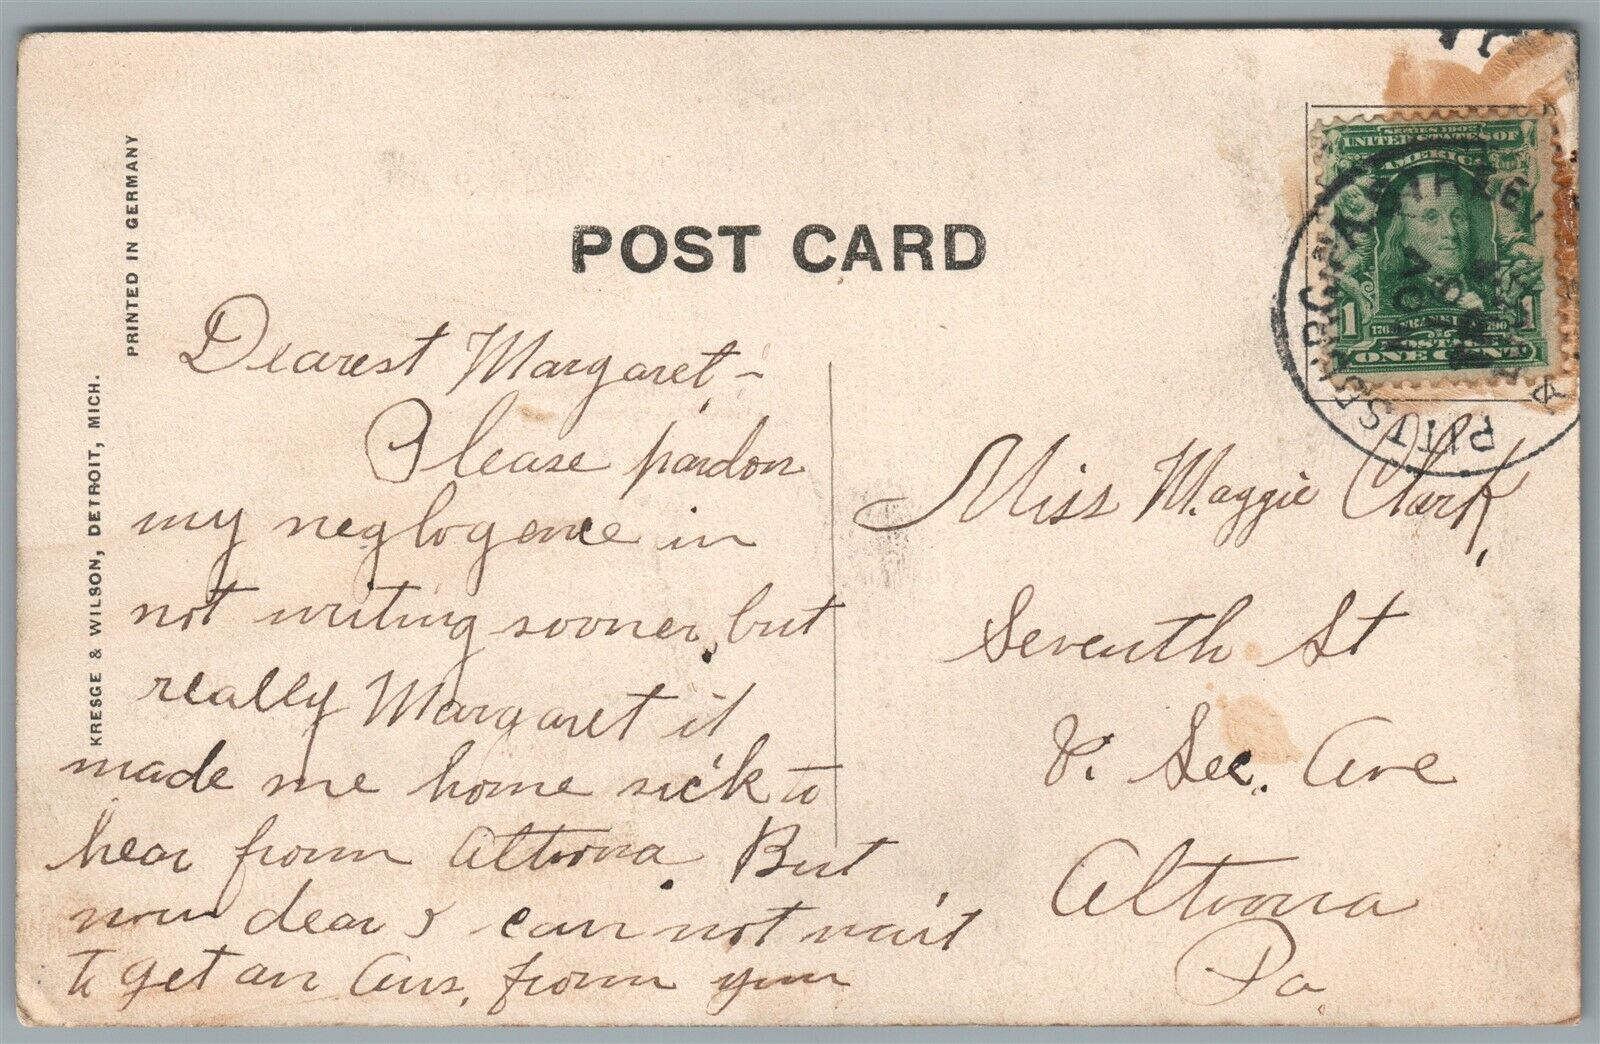 POST CARD
PRINTED IN GERMANY
KRESGE & WILSON, DETROIT, MICH.
SERIES 1902
UNITED STATES OF
AMERICA
1 1
POSTAGE
ONE CENT
PITTSBURGH, PA.
NOV
Dearest Margaret -
Please pardon
my neglogence in
not writing sooner, but
really Margaret it
made me home sick to
hear from Altoona. But
now dear I can not wait
to get an Ans. from you
Miss Maggie Clark,
Seventh St
V. Sec. Ave
Altoona
Pa.